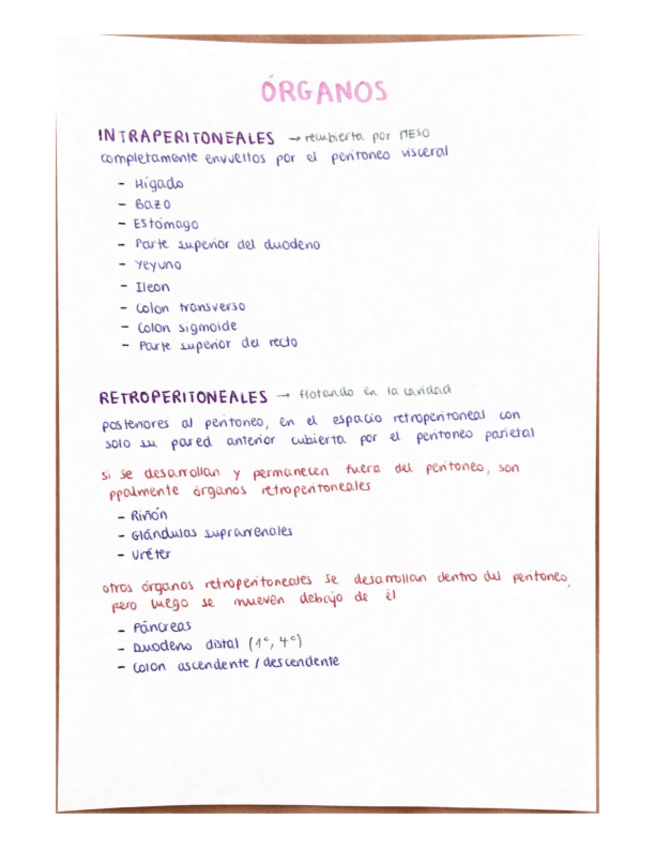 ÓRGANOS
INTRAPERITONEALES → recubierta por MESO
completamente envueltos por el peritoneo visceral
- Hígado
- Bazo
- Estómago
- Parte superior del duodeno
- Yeyuno
- Ileon
- Colon transverso
- Colon sigmoide
- Parte superior del recto
RETROPERITONEALES → flotando en la cavidad
posteriores al peritoneo, en el espacio retroperitoneal con
solo su pared anterior cubierta por el peritoneo parietal
si se desarrollan y permanecen fuera del peritoneo, son
ppalmente órganos retroperitoneales
- Riñón
- Glándulas suprarrenales
- Uréter
otros órganos retroperitoneales se desarrollan dentro del peritoneo,
pero luego se mueven debajo de él
- Páncreas
- Duodeno distal (1ª, 4ª)
- Colon ascendente / descendente